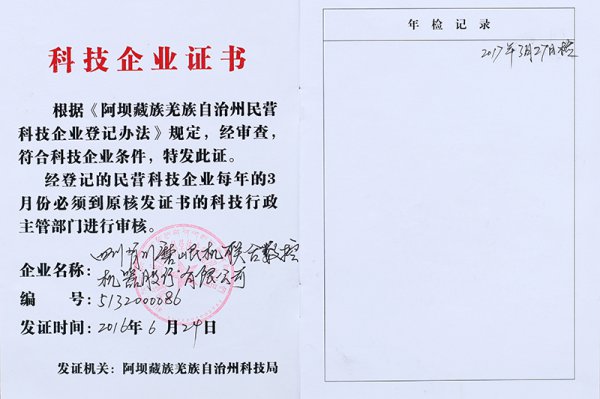 科技企业证书
根据《阿坝藏族羌族自治州民营
科技企业登记办法》规定，经审查，
符合科技企业条件，特发此证。
经登记的民营科技企业每年的3
月份必须到原核发证书的科技行政
主管部门进行审核。
四川 机联合数控
企业名称：机器股份有限公司
编 号：5132000086
发证时间：2016年6月24日
发证机关：阿坝藏族羌族自治州科技局
年检记录
2017年3月27日检